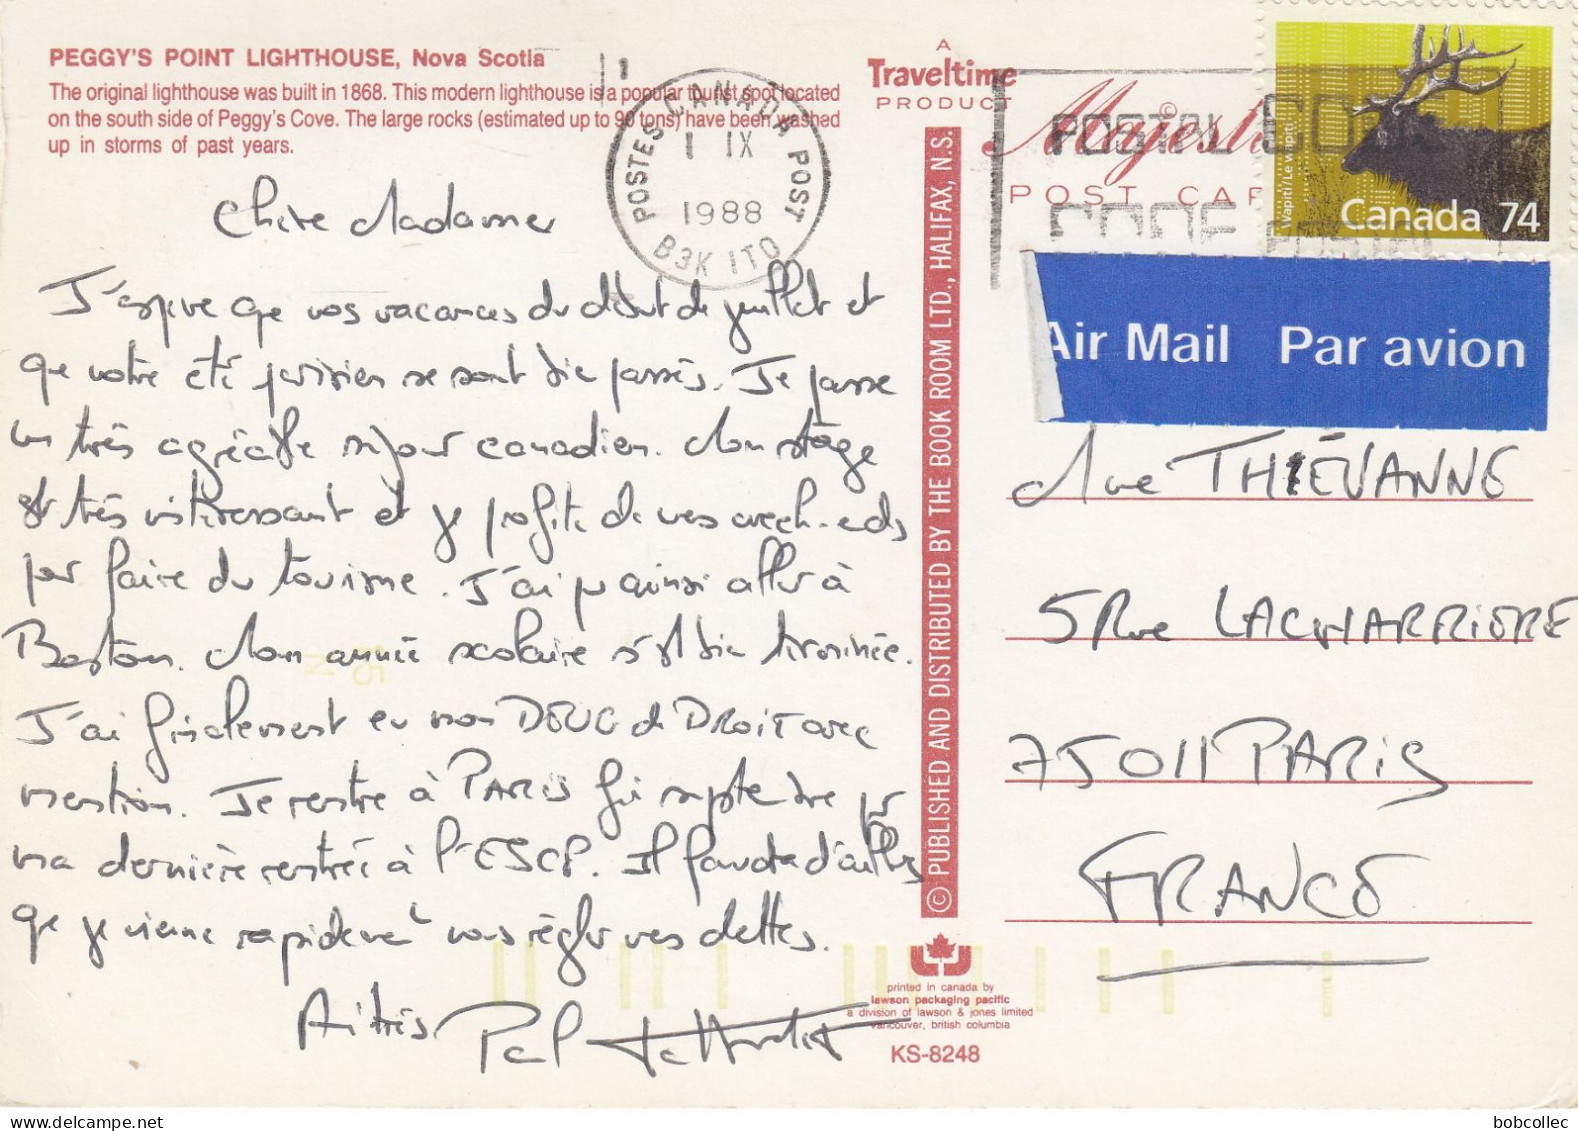 PEGGY'S POINT LIGHTHOUSE, Nova Scotia
The original lighthouse was built in 1868. This modern lighthouse is a popular tourist spot located
on the south side of Peggy's Cove. The large rocks (estimated up to 90 tons) have been washed
up in storms of past years.
A
Traveltime
PRODUCT
Majesti
©
POST CAR
POSTES CANADA POST
1 IX
1988
B3K 1T0
POSTAL CODE
CODE POSTAL
Wapiti/Le wapiti
Canada 74
Air Mail Par avion
Chère Madame
J'espère que vos vacances du début de juillet et
que votre été parisien se sont bien passés. Je passe
un très agréable séjour canadien. Mon stage
est très intéressant et je profite de mes week-ends
pour faire du tourisme. J'ai pu ainsi aller à
Boston. Mon année scolaire s'est bien terminée.
J'ai finalement eu mon DEUG de DROIT avec
mention. Je rentre à PARIS fin septembre pour
ma dernière rentrée à l'ESCP. Il faudra d'ailleurs
que je vienne rapidement vous régler mes dettes.
A très
Mme THIÉVANNE
5 Rue LACHARRIERE
75011 PARIS
FRANCE
© PUBLISHED AND DISTRIBUTED BY THE BOOK ROOM LTD., HALIFAX, N.S.
printed in canada by
lawson packaging pacific
a division of lawson & jones limited
vancouver, british columbia
KS-8248
bobcollec